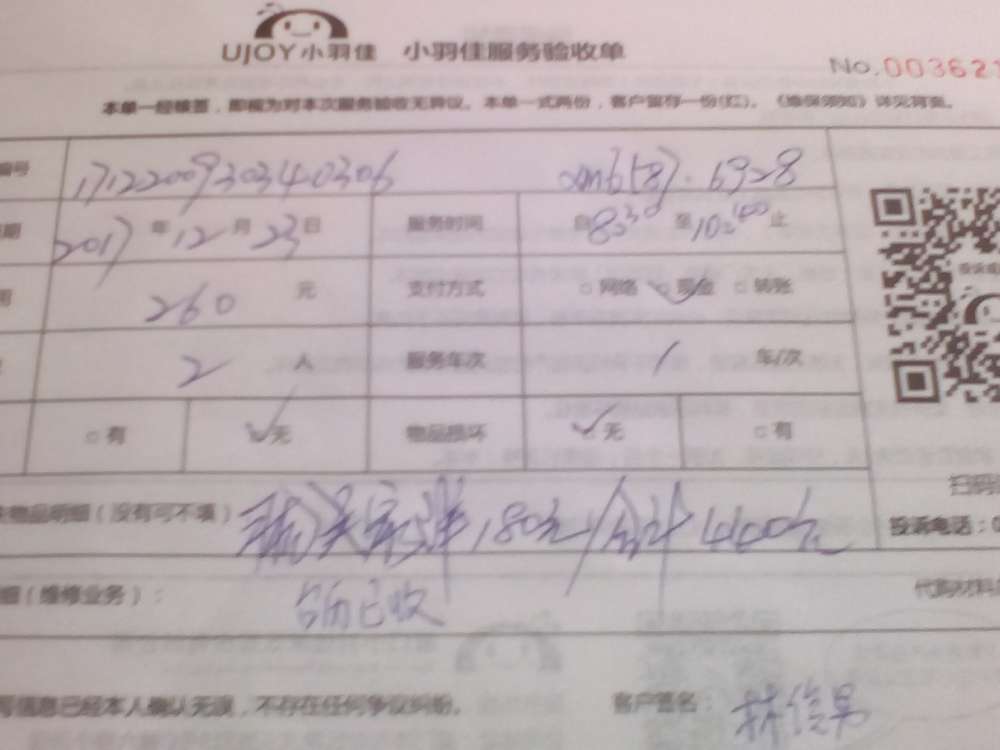 UJOY小羽佳 小羽佳服务验收单
No.003621
本单一经核签，即视为对本次服务验收无异议。本单一式两份，客户留存一份(红)。《维保须知》详见背面。
编号 1712200930340306 6928
2017 年 12 月 23 日 服务时间 自 8:30 至 10:00 止
260 元 支付方式 □网络 □现金 □转账
2 人 服务车次 1 车/次
□有 □无 物品损坏 □无 □有
物品明细（没有可不填） 180元 合计 440元
扫码
投诉电话：0
细（维修业务）： 已收
代购材料
写信息已经本人确认无误，不存在任何争议纠纷。 客户签名： 林